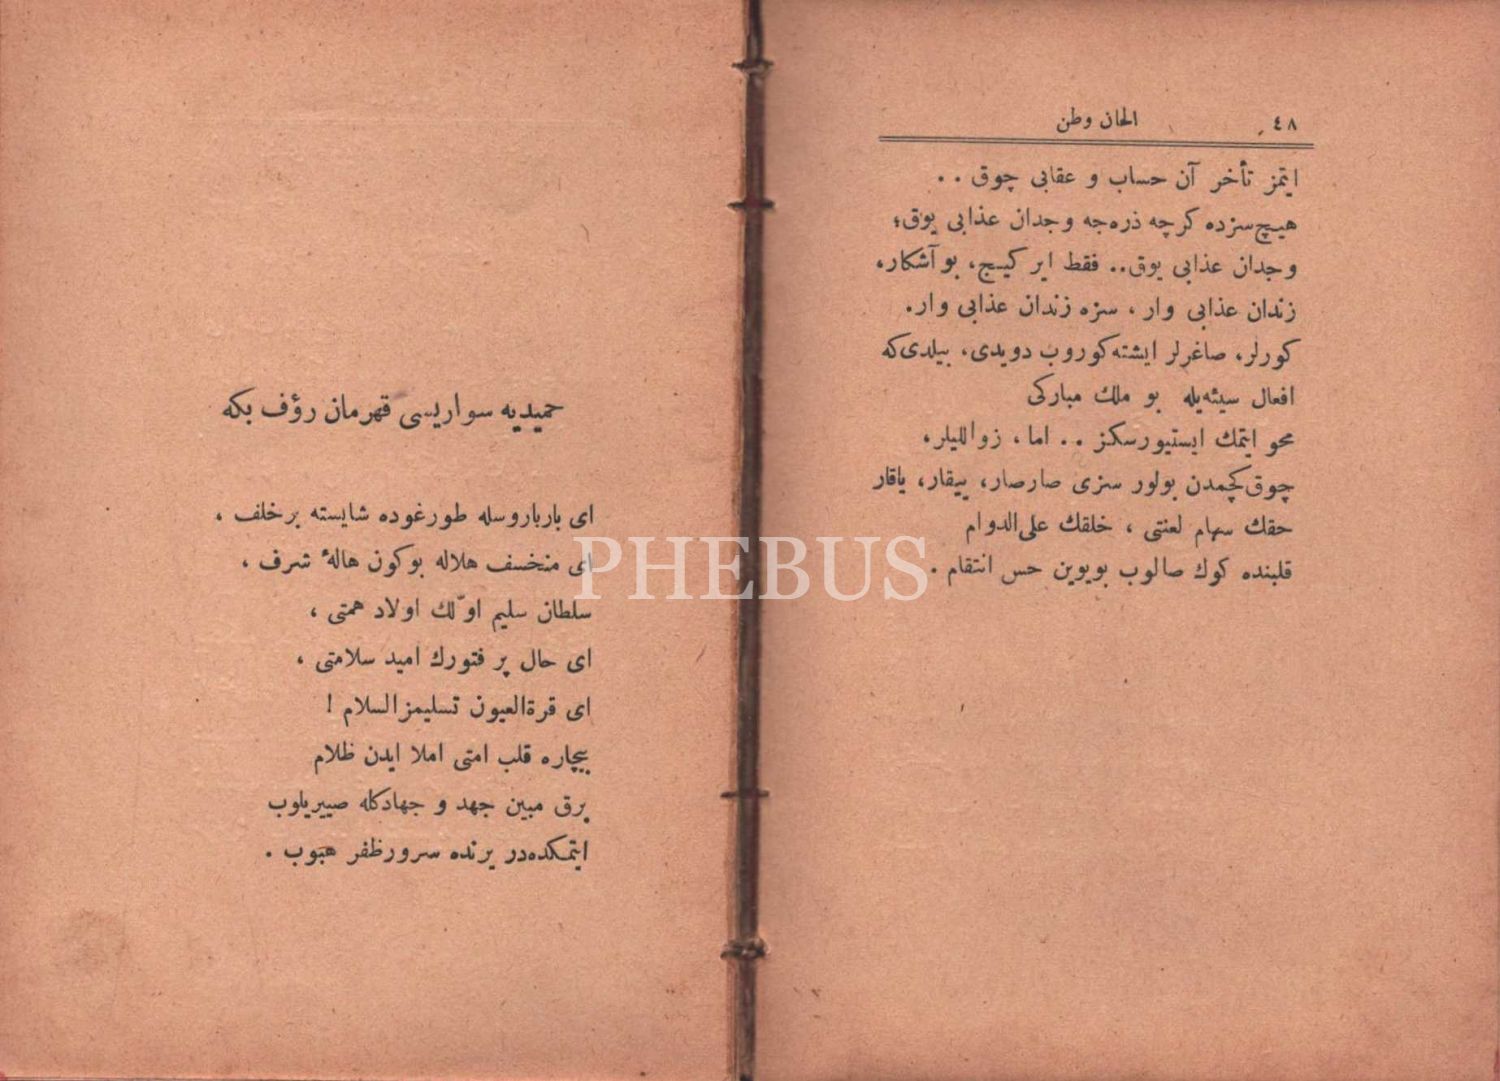 ٤٨ الحان وطن
ايتمز تأخر آن حساب و عقابى چوق . .
هيچ‌سزده كرچه ذره‌جه وجدان عذابى يوق؛
وجدان عذابى يوق.. فقط اير كيج، بو آشكار،
زندان عذابى وار ، سزه زندان عذابى وار.
كورلر، صاغرلر ايشته كوروب دويدى، بيلدى كه
افعال سيئه‌يله بو ملك مباركى
محو ايتمك ايستيورسكز . . اما، زواللیلر،
چوق كچمدن بولور سزى صارصار، ييقار، ياقار
حقك سهام لعنتى ، خلقك على‌الدوام
قلبنده كوك صالوب بويوين حس انتقام .
حميديه سواريسى قهرمان رؤف بكه
اى بارباروسله طورغوده شايسته برخلف ،
اى منخسف هلاله بوكون هالۀ شرف ،
سلطان سليم اوّلك اولاد همتى ،
اى حال پر فتورك اميد سلامتى ،
اى قرةالعيون تسليمزالسلام !
بيچاره قلب امتى املا ايدن ظلام
برق مبين جهد و جهادكله صييريلوب
ايتمكده‌در يرنده سرور ظفر هبوب .
PHEBUS